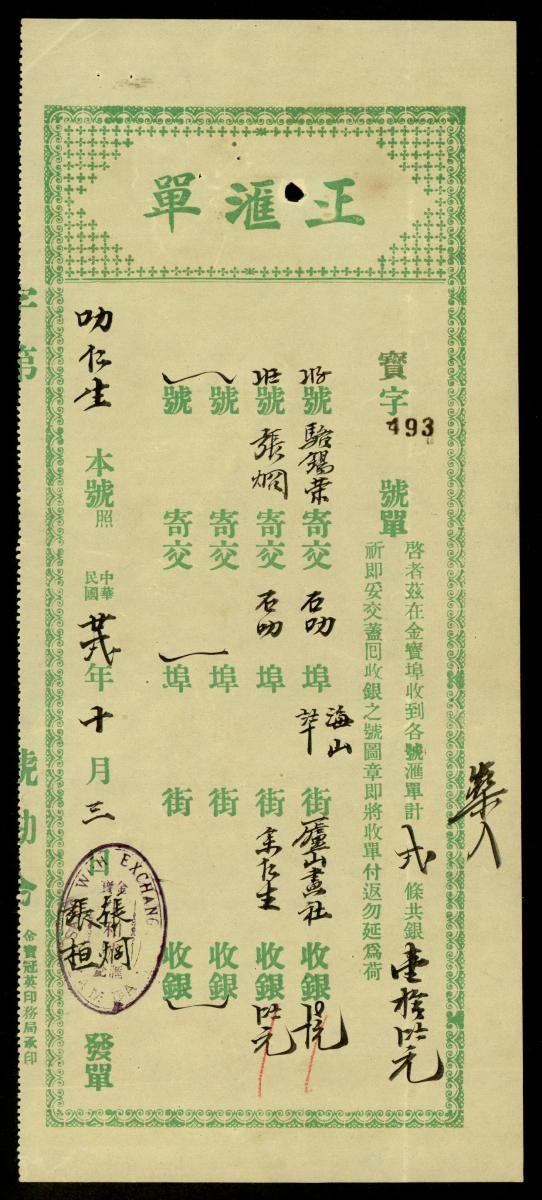 正滙單
寶字
493
號單
啓者茲在金寶埠收到各號滙單計 弍 條共銀 壹拾
元
祈即妥交蓋囘收銀之號圖章即將收單付返勿延爲荷
號 駱錫荣 寄交 石叻 埠 海山 街 廬山畫社 收銀
號 張烱 寄交 石叻 埠 街 余仁生 收銀
元
號 寄交 埠 街 收銀
號 寄交 埠 街 收銀
叻仁生 本號照 中華民國 廿弍 年 十 月 三 日 張烱 張桓 發單
EXCHANG
字第
號勘合
金寶冠英印務局承印